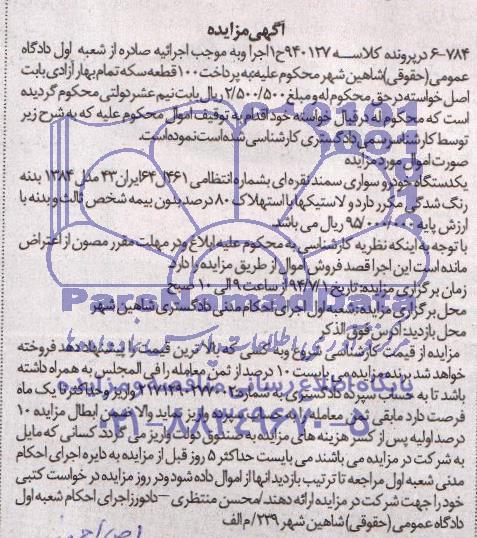 آگهی مزایده
۶-۷۸۴ در پرونده کلاسه ۹۴۰۱۲۷ح۱اجرا وبه موجب اجرائیه صادره از شعبه اول دادگاه
عمومی(حقوقی)شاهین شهر محکوم علیه به پرداخت ۱۰۰قطعه سکه تمام بهار آزادی بابت
اصل خواسته در حق محکوم له و مبلغ ۲/۵۰۰/۵۰۰ ریال بابت نیم عشر دولتی محکوم گردیده
است که محکوم له در قبال خواسته خود اقدام به توقیف اموال محکوم علیه که به شرح زیر
توسط کارشناس رسمی دادگستری کارشناسی شده است نموده است.
صورت اموال مورد مزایده
یکدستگاه خودرو سواری سمند نقره ای بشماره انتظامی ۴۶۱ل۶۴ایران۴۳ مدل ۱۳۸۴ بدنه
رنگ شدگی مکرر دارد و لاستیکها با استهلاک ۸۰ درصد بدون بیمه شخص ثالث و بدنه با
ارزش پایه ۹۵/۰۰۰/۰۰۰ ریال می باشد.
با توجه به اینکه نظریه کارشناسی به محکوم علیه ابلاغ ودر مهلت مقرر مصون از اعتراض
مانده است این اجرا قصد فروش اموال از طریق مزایده را دارد
زمان برگزاری مزایده: تاریخ ۹۴/۷/۱ از ساعت ۹ الی ۱۰ صبح
محل برگزاری مزایده: شعبه اول اجرای احکام مدنی دادگستری شاهین شهر
محل بازدید: آدرس فوق الذکر
مزایده از قیمت کارشناسی شروع وبه کسی که بالاترین قیمت را پیشنهاد دهد فروخته
خواهد شد برنده مزایده می بایست ۱۰ درصد از ثمن معامله را فی المجلس به همراه داشته
باشد تا به حساب سپرده دادگستری به شماره واریز وحداکثر تا یک ماه
فرصت دارد مابقی ثمن معامله را به حساب سپرده واریز نماید والا ضمن ابطال مزایده ۱۰
درصد اولیه پس از کسر هزینه های مزایده به صندوق دولت واریز می گردد کسانی که مایل
به شرکت در مزایده می باشند می بایست حداکثر ۵ روز قبل از مزایده به دایره اجرای احکام
مدنی شعبه اول مراجعه تا ترتیب بازدید آنها از اموال داده شود ودر روز مزایده درخواست کتبی
خود را جهت شرکت در مزایده ارائه دهند/محسن منتظری – دادورز اجرای احکام شعبه اول
دادگاه عمومی (حقوقی) شاهین شهر ۲۳۹/م الف
ParsNamadData
پایگاه اطلاع رسانی مناقصه و مزایده
۰۲۱-۸۸۳۴۹۶۷۰-۵